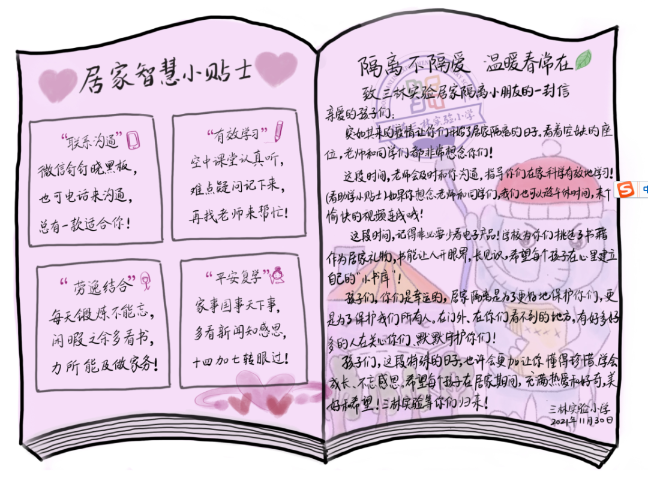 居家智慧小贴士
“联系沟通”
微信钉钉晓黑板，
也可电话来沟通，
总有一款适合你！
“有效学习”
空中课堂认真听，
难点疑问记下来，
再找老师来帮忙！
“劳逸结合”
每天锻炼不能忘，
闲暇之余多看书，
力所能及做家务！
“平安复学”
家事国事天下事，
多看新闻知感恩，
十四加七转眼过！
隔离不隔爱 温暖春常在
致三林实验居家隔离小朋友的一封信
亲爱的孩子们：
突如其来的疫情让你们开始了居家隔离的日子，看着空缺的座
位，老师和同学们都非常想念你们！
这段时间，老师会及时和你沟通，指导你们在家科学有效地学习！
如果你想念老师和同学们，我们也可以趁午休时间，来个
愉快的视频连线哦！
这段时间，记得
少看电子产品！学校为你们挑选了书籍
作为居家礼物，书能让人开眼界，长见识，希望每个孩子在心里建立
自己的“小书库”！
孩子们，你们是幸运的，居家隔离是为了更好地保护你们，更
是为了保护我们所有人，在门外，在你们看不到的地方，有好多好
多的人在关心你们，默默守护你们！
孩子们，这段特殊的日子，也许会更加让你懂得珍惜，学会
成长，不忘感恩。希望每个孩子在居家期间，充满热爱和好奇，美
好和希望！三林实验等你们归来！
三林实验小学
2021年11月30日